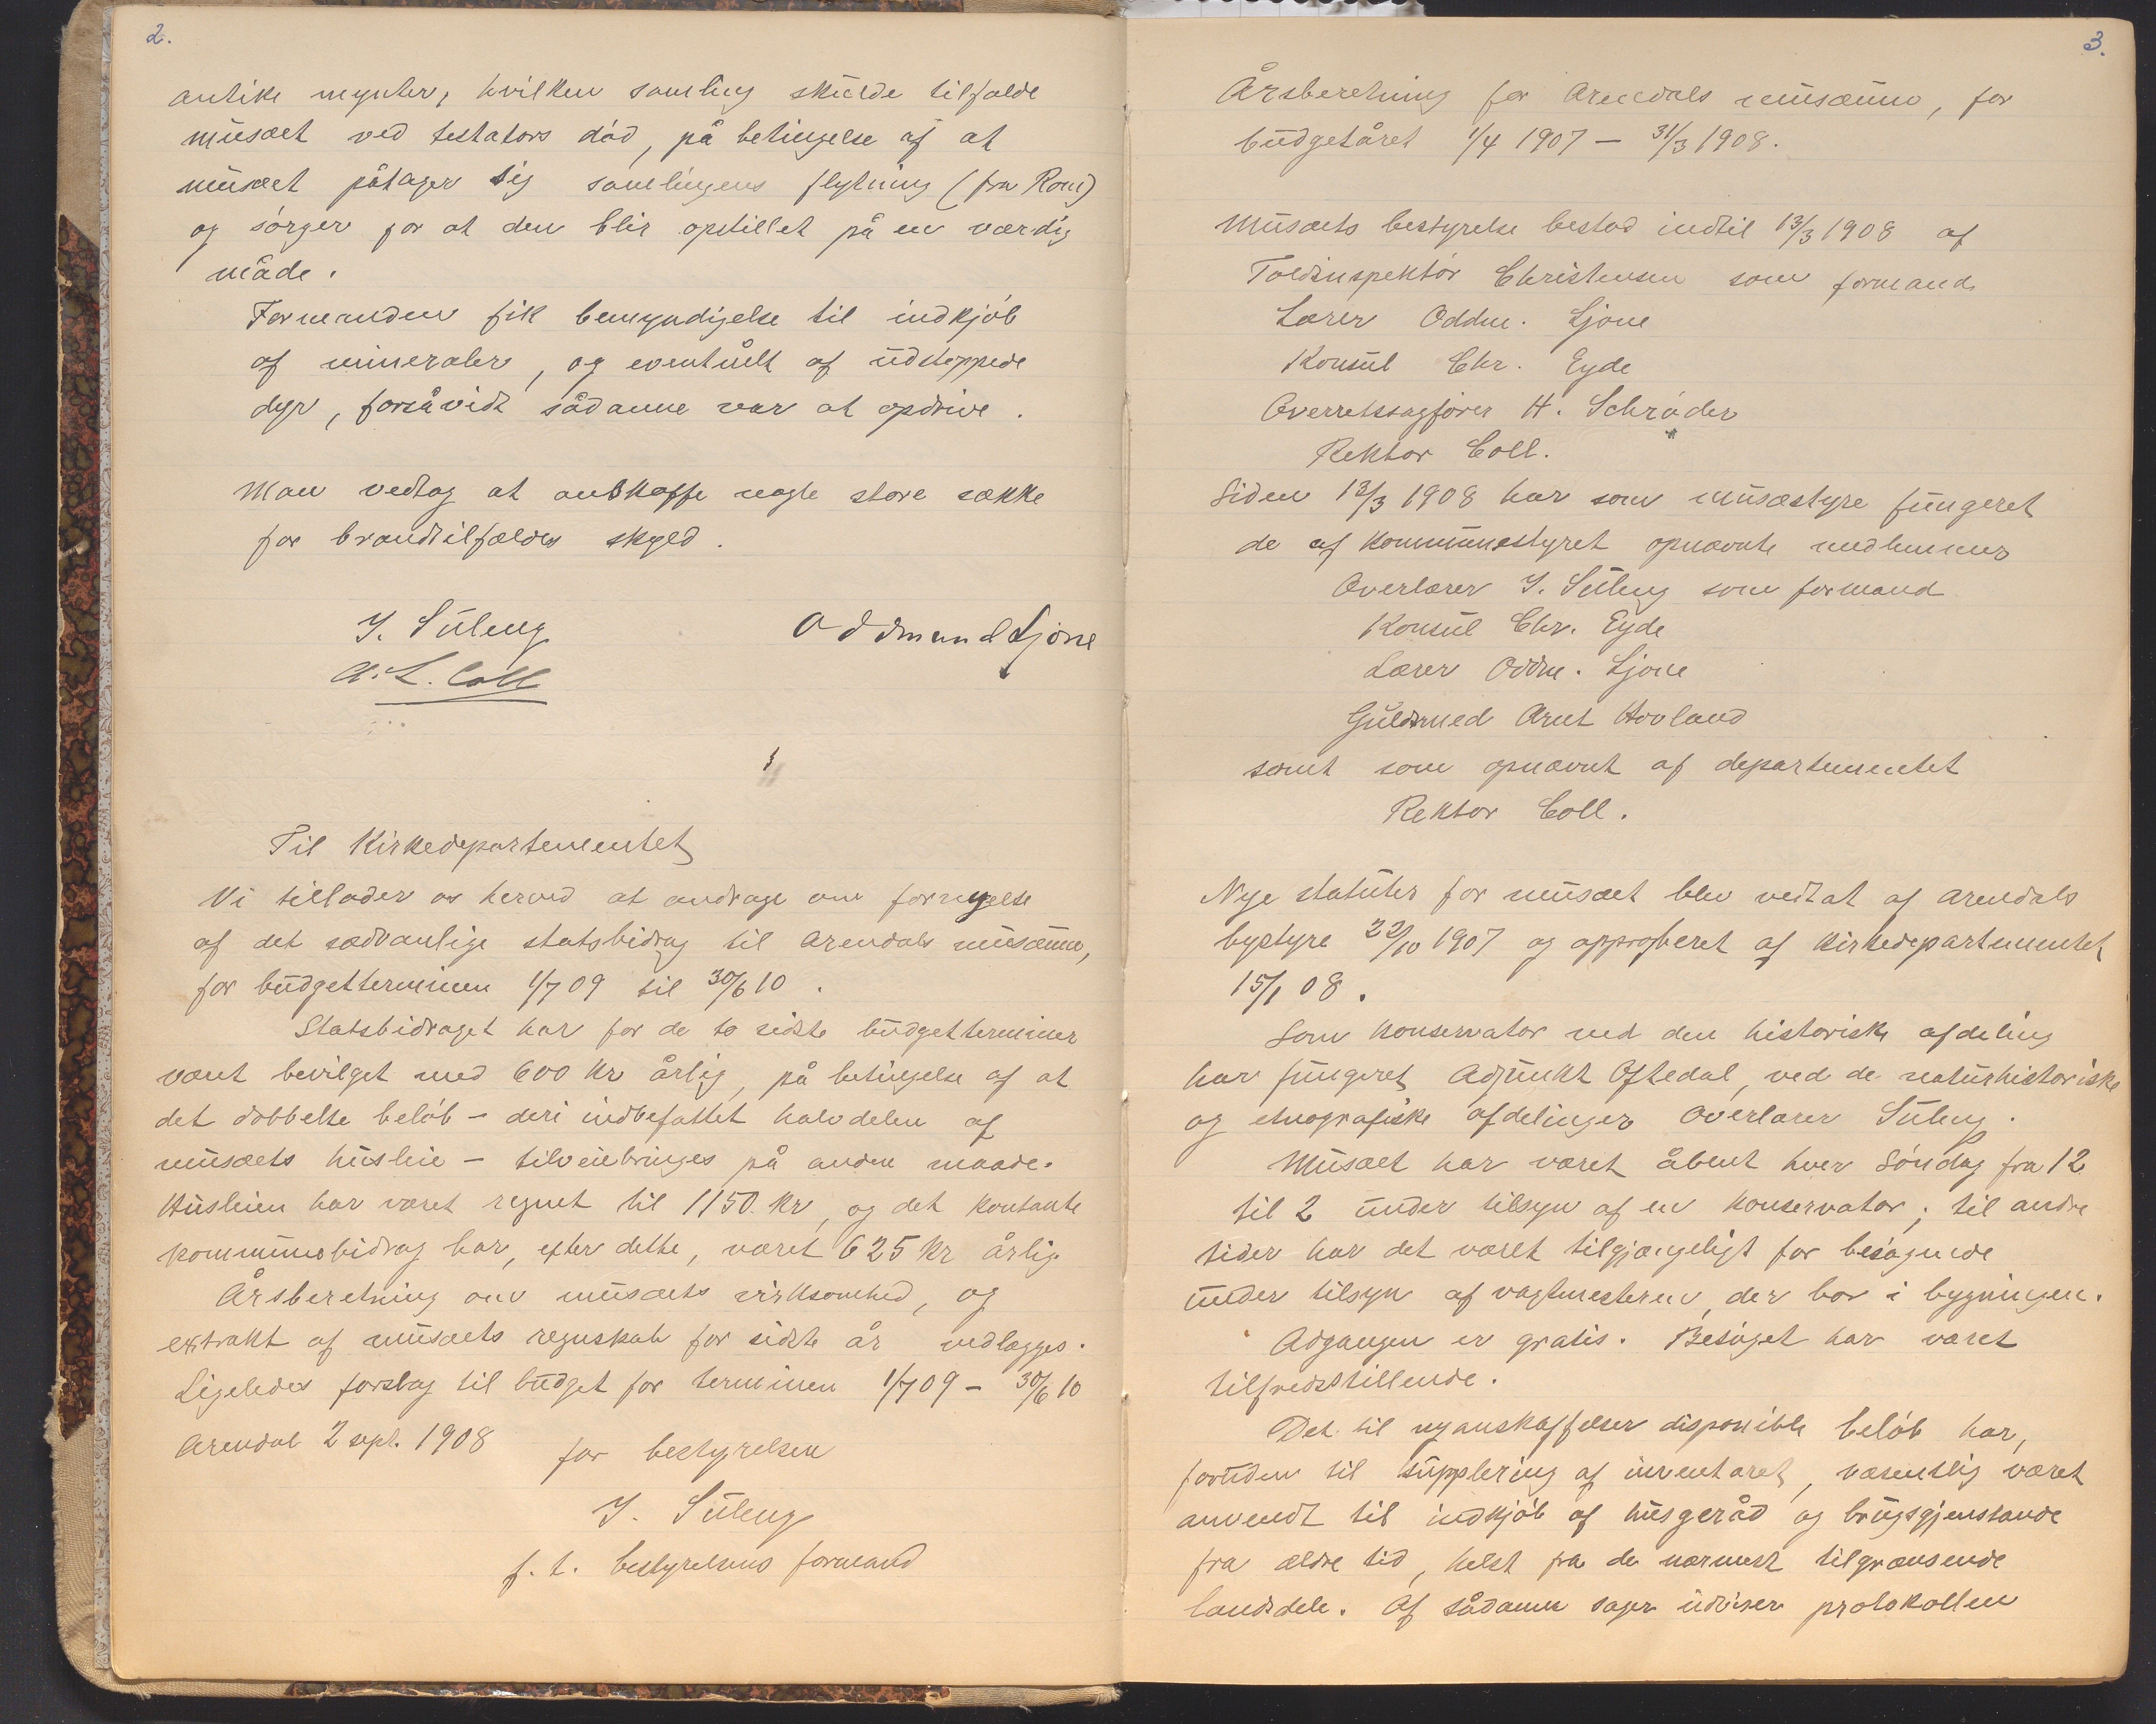 2.
antike mynter, hvilken samling skulde tilfalde
musæet ved testators død, på betingelse af at
musæet påtager sig samlingens flytning (fra Rom)
og sørger for at den blir opstillet på en værdig
måde.
Formanden fik bemyndigelse til indkjøb
af mineraler, og eventuelt af udstoppede
dyr, forsåvidt sådanne var at opdrive.
Man vedtog at anskaffe nogle store sække
for brandtilfældes skyld.
J. Süleng Oddmund Ljone
A. L. Coll
Til Kirkedepartementet
Vi tillader os herved at andrage om fornyelse
af det sædvanlige statsbidrag til Arendals musæum,
for budgetterminen 1/7 09 til 30/6 10.
Statsbidraget har for de to sidste budgetterminer
været bevilget med 600 kr årlig, på betingelse af at
det dobbelte beløb - deri indbefattet halvdelen af
musæets husleie - tilveiebringes på anden maade.
Husleien har været regnet til 1150 kr, og det kontante
kommunebidrag har, efter dette, været 625 kr årlig.
Årsberetning om musæets virksomhed, og
extrakt af musæets regnskab for sidste år vedlægges.
Ligeledes forslag til budget for terminen 1/7 09 - 30/6 10
Arendal 2 sept. 1908 for bestyrelsen
J. Süleng
f. t. bestyrelsens formand
3.
Årsberetning for Arendals musæum, for
budgetåret 1/4 1907 - 31/3 1908.
Musæets bestyrelse bestod indtil 13/3 1908 af
Toldinspektør Christensen som formand
Lærer Oddm. Ljone
Konsul Chr. Eyde
Overretssagfører H. Schrøder
Rektor Coll.
Siden 13/3 1908 har som musæstyre fungeret
de af kommunestyret opnævnte medlemmer
Overlærer J. Süleng som formand
Konsul Chr. Eyde
Lærer Oddm. Ljone
Guldsmed Arnt Hovland
samt som opnævnt af departementet
Rektor Coll.
Nye statuter for musæet blev vedtat af Arendals
bystyre 22/10 1907 og approberet af Kirkedepartementet
15/1 08.
Som konservator ved den historiske afdeling
har fungeret Adjunkt Oftedal, ved de naturhistoriske
og etnografiske afdelinger Overlærer Süleng.
Musæet har været åbent hver Søndag fra 12
til 2 under tilsyn af en konservator; til andre
tider har det været tilgjængeligt for besøgende
under tilsyn af vagtmesteren, der bor i bygningen.
Adgangen er gratis. Besøget har været
tilfredsstillende.
Det til nyanskaffelser disponible beløb har,
foruden til supplering af inventaret, væsentlig været
anvendt til indkjøb af husgeråd og brugsgjenstande
fra ældre tid, helst fra de nærmest tilgrænsende
landsdele. Af sådanne sager udviser protokollen